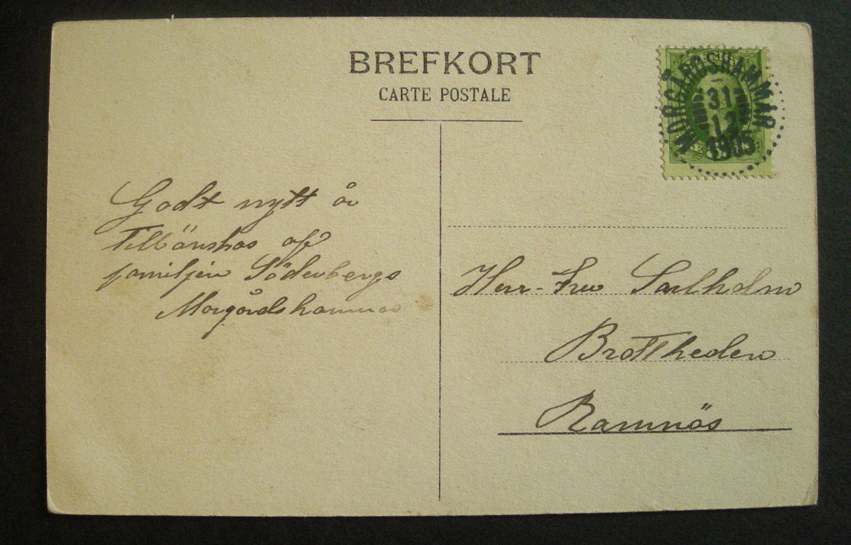 BREFKORT
CARTE POSTALE
MORGÅRDSHAMMAR
31
12
1905
Godt nytt år
Tillönskas af
familjen Söderbergs
Morgårdshammar
Herr-Fru
Brottheden
Ramnäs